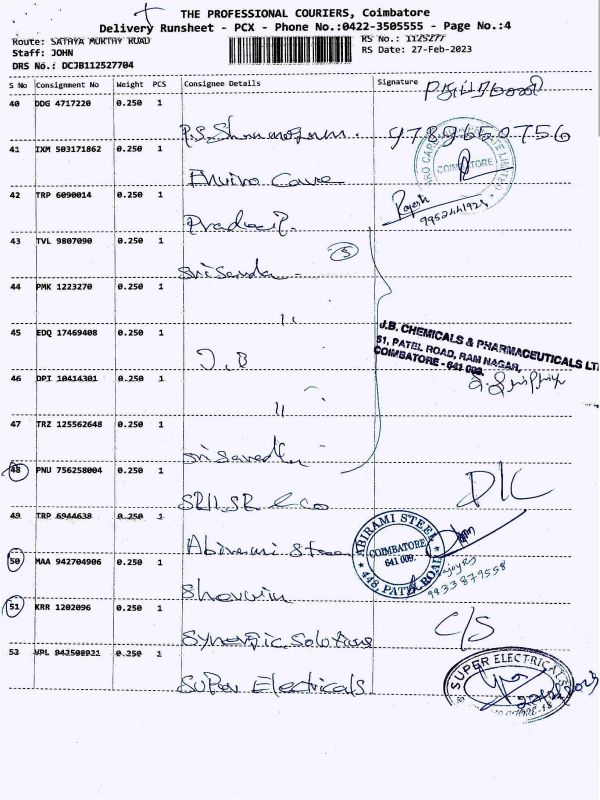 THE PROFESSIONAL COURIERS, Coimbatore
Delivery Runsheet - PCX - Phone No.:0422-3505555 - Page No.:4
Route: SATHYA MURTHY ROAD
RS No.: 1125277
Staff: JOHN
RS Date: 27-Feb-2023
DRS No.: DCJB112527704
S No Consignment No Weight PCS Consignee Details Signature
40 DDG 4717220 0.250 1
P.S. Shanmugam. 9789650756
41 IXM 503171862 0.250 1
COIMBATORE
Enviro Care
42 TRP 6090014 0.250 1
Rajesh
9952441924
Pradeep.
43 TVL 9807090 0.250 1
5
44 PMK 1223270 0.250 1
"
45 EDQ 17469408 0.250 1
J.B. CHEMICALS & PHARMACEUTICALS LT
51, PATEL ROAD, RAM NAGAR,
COIMBATORE - 641 009.
J.B
46 DPI 10414301 0.250 1
"
47 TRZ 125562648 0.250 1
48 PNU 756258004 0.250 1
D/C
SRILSR & Co
49 TRP 6944638 0.250 1
ABIRAMI STEEL
COIMBATORE
641 009.
448, PATEL ROAD
Abirami Steel
50 MAA 942704906 0.250 1
9933879558
51 KRR 1202096 0.250 1
C/S
Synergic Solutions
52 VPL 942508921 0.250 1
SUPER ELECTRICALS
Super Electricals